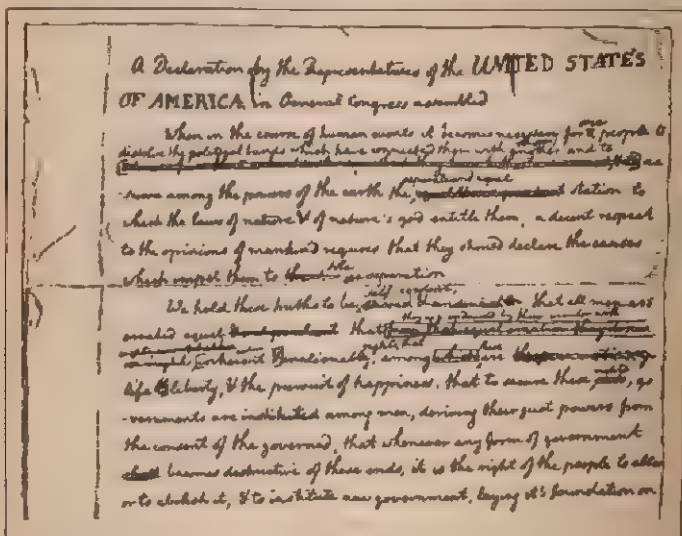 A Declaration by the Representatives of the UNITED STATES
OF AMERICA, in General Congress assembled
When in the course of human events it becomes necessary for one people to
dissolve the political bands which have connected them with another and to as
-sume among the powers of the earth the separate and equal station to
which the laws of nature & of nature's god entitle them, a decent respect
to the opinions of mankind requires that they should declare the causes
which impel them to the separation
We hold these truths to be self evident; that all men are
created equal that they are endowed by their creator with
inherent & inalienable rights, that among these are
life & liberty, & the pursuit of happiness, that to secure these rights, go
-vernments are instituted among men, deriving their just powers from
the consent of the governed, that whenever any form of government
becomes destructive of these ends, it is the right of the people to alter
or to abolish it, & to institute new government, laying it's foundation on